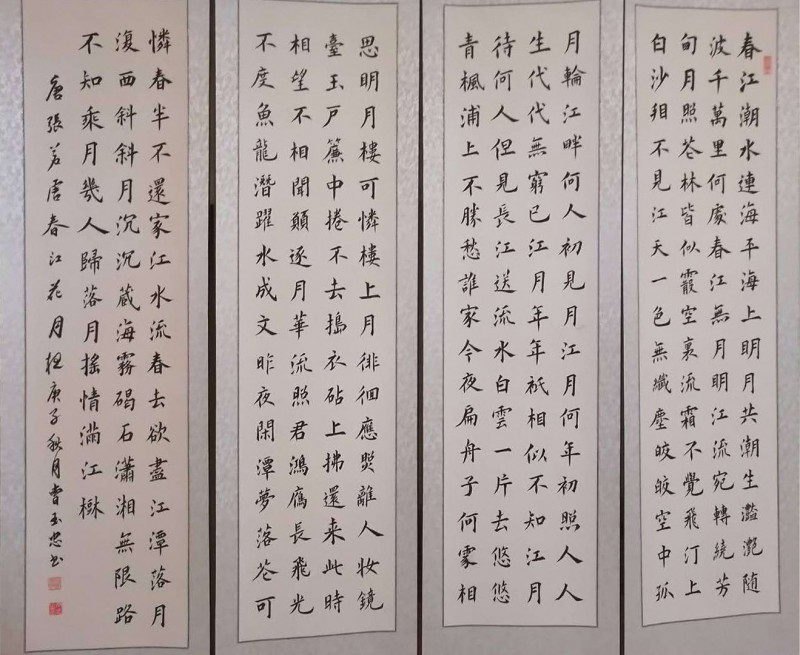 春江潮水連海平海上明月共潮生灩灔随
波千萬里何處春江無月明江流宛轉繞芳
甸月照芲林皆似霰空裏流霜不覺飛汀上
白沙㸔不見江天一色無纖塵皎皎空中孤
月輪江畔何人初見月江月何年初照人人
生代代無窮已江月年年祇相似不知江月
待何人但見長江送流水白雲一片去悠悠
青楓浦上不勝愁誰家今夜扁舟子何處相
思明月樓可憐樓上月徘徊應照離人妝鏡
臺玉戶簾中捲不去搗衣砧上拂還来此時
相望不相聞願逐月華流照君鴻鴈長飛光
不度魚龍潛躍水成文昨夜閑潭夢落芲可
憐春半不還家江水流春去欲盡江潭落月
復西斜斜月沉沉藏海霧碣石瀟湘無限路
不知乘月幾人歸落月搖情滿江樹
唐張若虛春江花月夜庚子秋月曹玉忠書